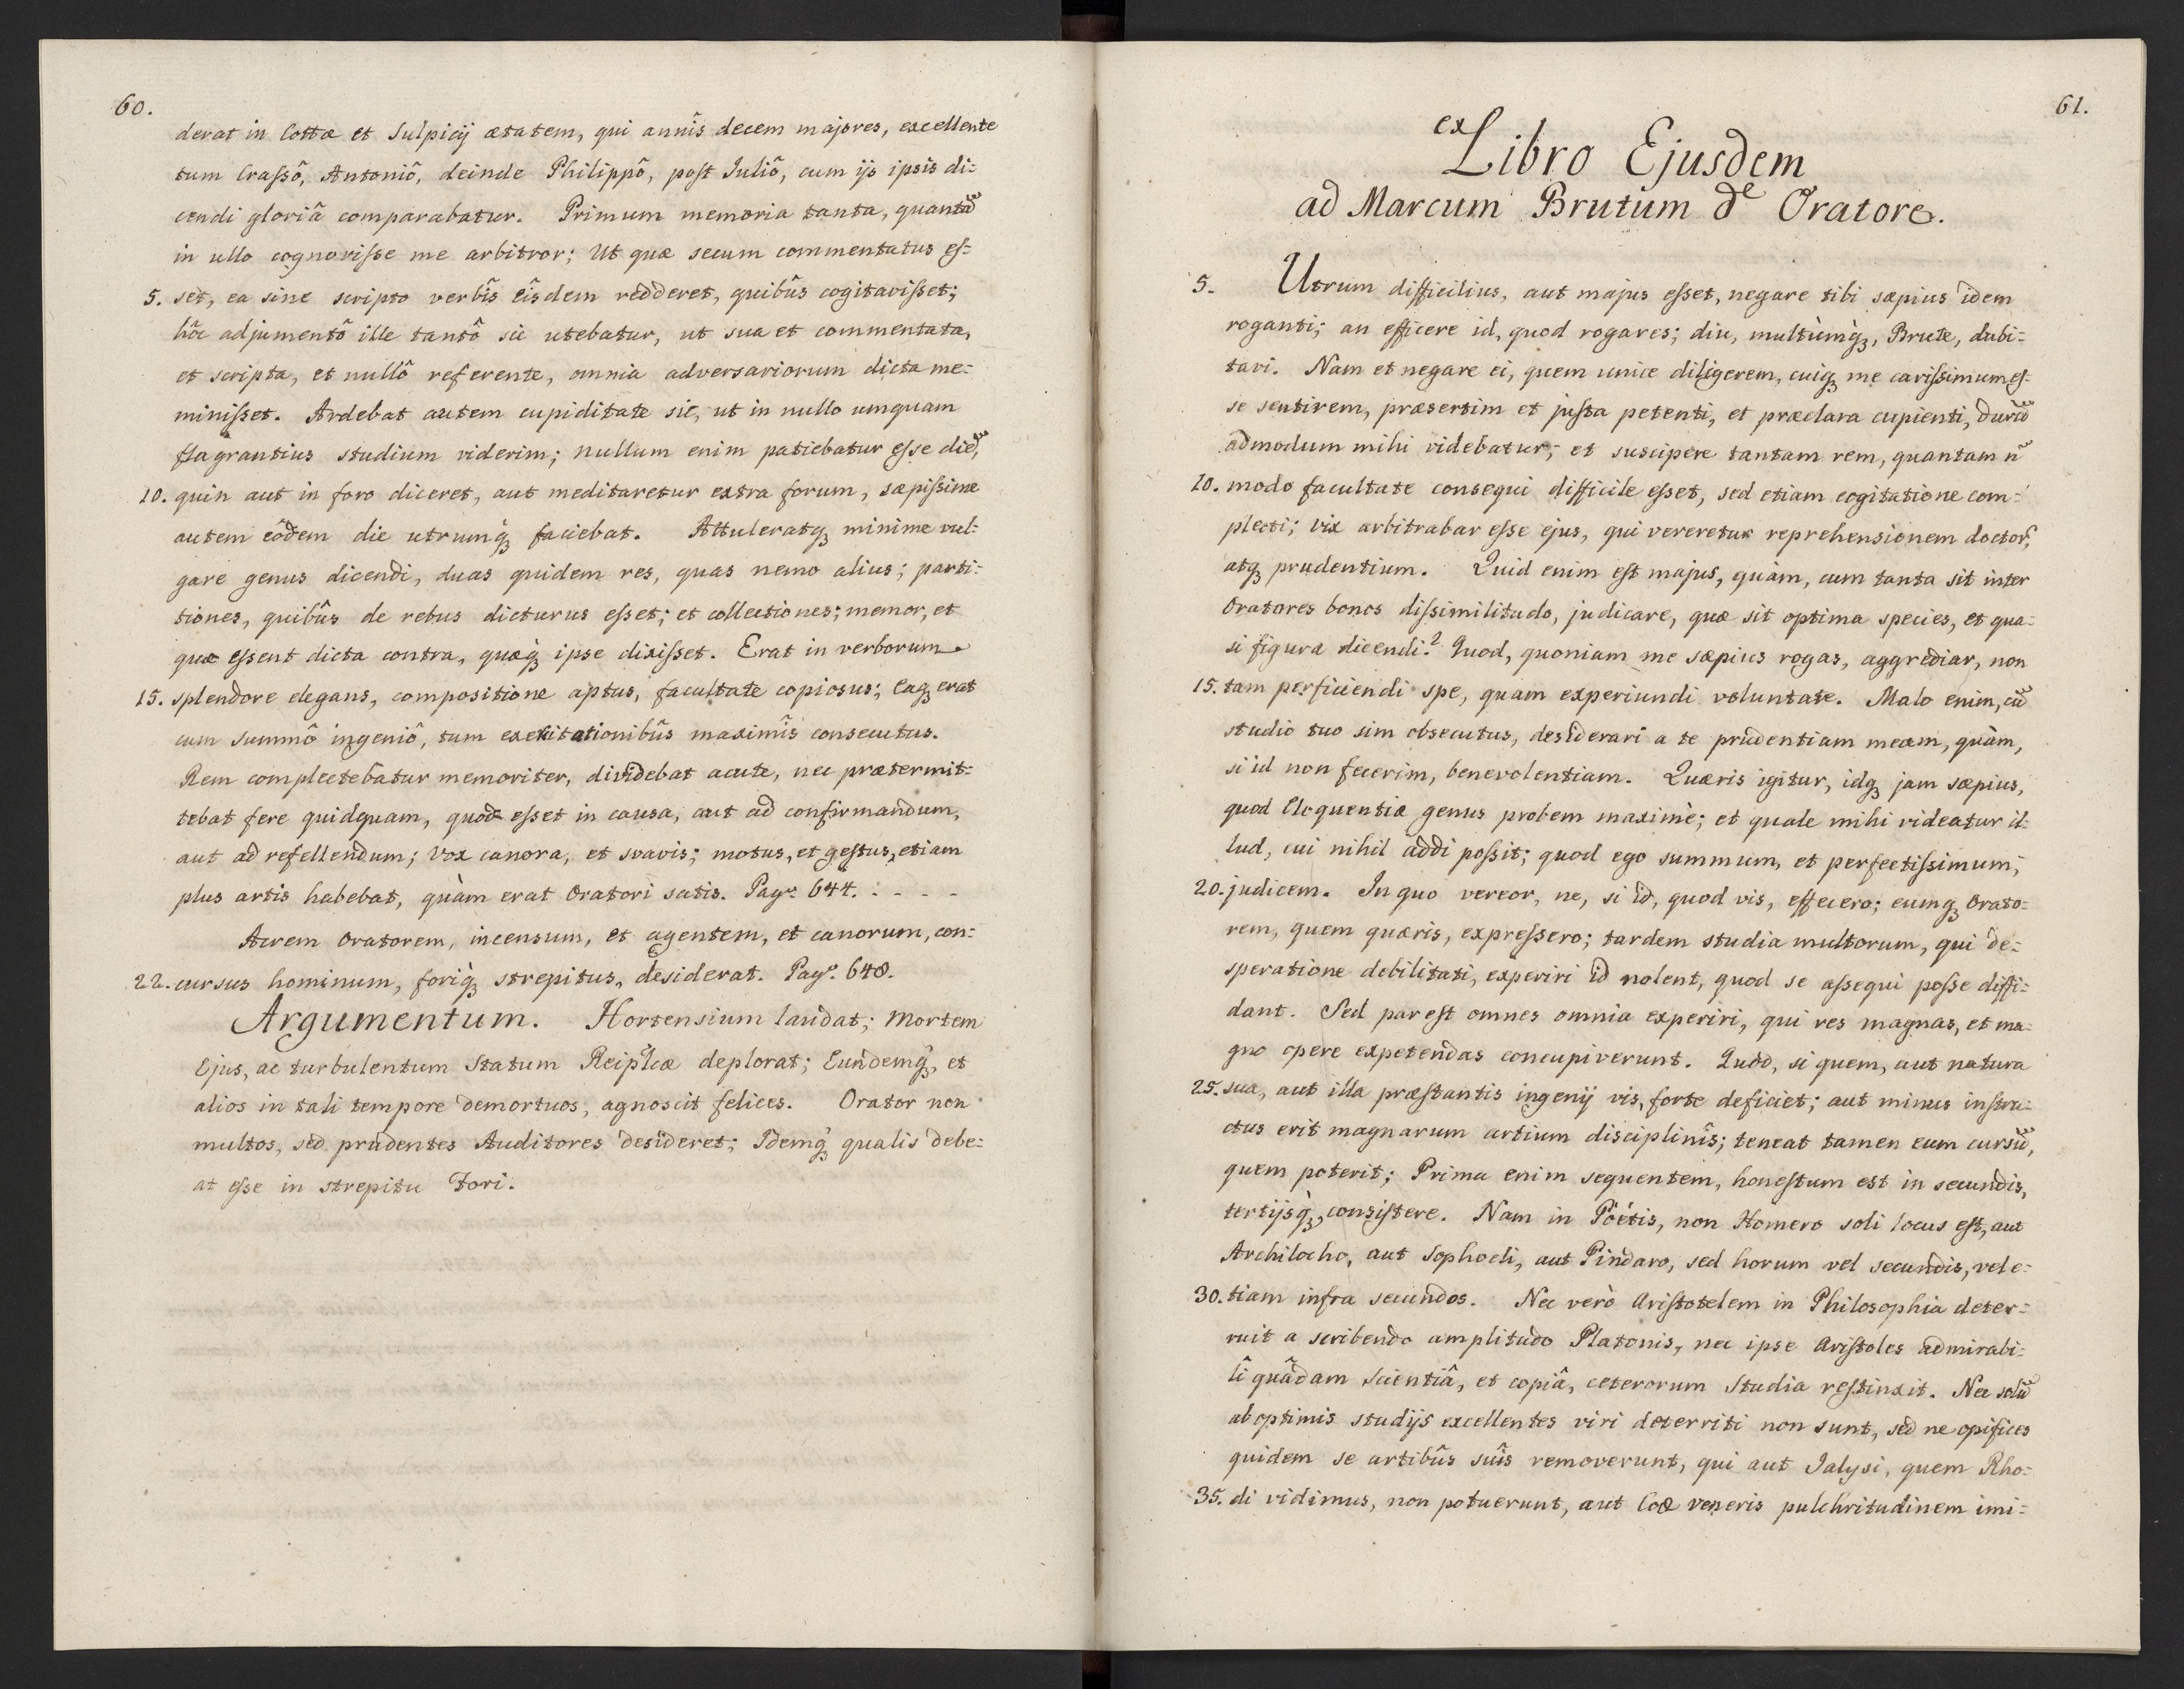 60.
derat in Cottæ et Sulpicij ætatem, qui annîs decem majores, excellente
tum Craſsô, Antoniô, deinde Philippô, poſt Juliô, cum ijs ipsis di=
cendi gloriâ comparabatur. Primum memoria tanta, quantā
in ullo cognoviſse me arbitror; Ut quæ secum commentatus eſ=
5. set, ea sine scripto verbîs eîsdem redderet, quibûs cogitaviſset;
hôc adjumentô ille tantô sic utebatur, ut sua et commentata,
et scripta, et nullô referente, omnia adversariorum dicta me=
miniſset. Ardebat autem cupiditate sic, ut in nullo umquam
flagrantius studium viderim; nullum enim patiebatur eſse diē,
10. quin aut in foro diceret, aut meditaretur extra forum, sæpiſsime
autem eôdem die utrumq́ꝫ faciebat. Attuleratqꝫ minime vul=
gare genus dicendi, duas quidem res, quas nemo alius; parti=
tiones, quibûs de rebus dicturus eſset; et collectiones; memor, et
quæ eſsent dicta contra, quæq́ꝫ ipse dixiſset. Erat in verborum
15. splendore elegans, compositione aptus, facultate copiosus; eaqꝫ erat
cum summô ingeniô, tum exercitationibûs maximîs consecutus.
Rem complectebatur memoriter, dividebat acute, nec prætermit=
tebat fere quidquam, quod esset in causa, aut ad confirmandum,
aut ad refellendum; Vox canora, et svavis; motus, et geſtus, etiam
plus artis habebat, quàm erat Oratori satis. Pagº. 644. : - - -
Acrem Oratorem, incensum, et agentem, et canorum, con=
22. cursus hominum, foriq́ꝫ strepitus, desiderat. Pagº. 648.
Argumentum. Hortensium laudat; Mortem
Ejus, ac turbulentum Statum Reipłcæ deplorat; Eundemq́ꝫ, et
alios in tali tempore demortuos, agnoscit felices. Orator non
multos, sed prudentes Auditores desideret; Idemq́ꝫ qualis debe=
at eſse in strepitu Fori.
61.
ex Libro Ejusdem
ad Marcum Brutum de Oratore.
5. Utrum difficilius, aut majus eſset, negare tibi sæpius idem
roganti; an efficere id, quod rogares; diu, multùmq́ꝫ, Brute, dubi=
tavi. Nam et negare ei, quem unice diligerem, cuiqꝫ me cariſsimum eſ=
se sentirem, præsertim et juſta petenti, et præclara cupienti, durū
admodum mihi videbatur; et suscipere tantam rem, quantam ñ
10. modo facultate consequi difficile eſset, sed etiam cogitatione com=
plecti; vix arbitrabar eſse ejus, qui vereretur reprehensionem doctor̃,
atqꝫ prudentium. Quid enim eſt majus, quàm, cum tanta sit inter
Oratores bonos diſsimilitudo, judicare, quæ sit optima species, et qua=
si figura dicendi? Quod, quoniam me sæpius rogas, aggrediar, non
15. tam perficiendi spe, quam experiundi voluntate. Malo enim, cū
studio tuo sim obsecutus, desiderari a te prudentiam meam, quàm,
si id non fecerim, benevolentiam. Quæris igitur, idqꝫ jam sæpius,
quod Eloquentiæ genus probem maximè; et quale mihi videatur il=
lud, cui nihil addi poſsit; quod ego summum, et perfectiſsimum,
20. judicem. In quo vereor, ne, si id, quod vis, effecero; eumqꝫ Orato=
rem, quem quæris, expreſsero; tardem studia multorum, qui de=
speratione debilitati, experiri id nolent, quod se aſsequi poſse diffi=
dant. Sed par eſt omnes omnia experiri, qui res magnas, et ma=
gno opere expetendas concupiverunt. Quòd, si quem, aut natura
25. sua, aut illa præſtantis ingenij vis, forte deficiet; aut minus inſtru=
ctus erit magnarum artium disciplinîs; teneat tamen eum cursū,
quem poterit; Prima enim sequentem, honeſtum est in secundis,
tertijsq́ꝫ, consiſtere. Nam in Poëtis, non Homero soli locus eſt, aut
Archilocho, aut Sophocli, aut Pindaro, sed horum vel secundis, vel e=
30. tiam infra secundos. Nec verò Ariſtotelem in Philosophia deter=
ruit a scribendo amplitudo Platonis, nec ipse Ariſtoles admirabi=
lî quâdam scientiâ, et copiâ, ceterorum Studia reſtinxit. Nec solū
ab optimis studijs excellentes viri deterriti non sunt, sed ne opifices
quidem se artibûs suîs removerunt, qui aut Jalysi, quem Rho=
35. di vidimus, non potuerunt, aut Coæ Veneris pulchritudinem imi=